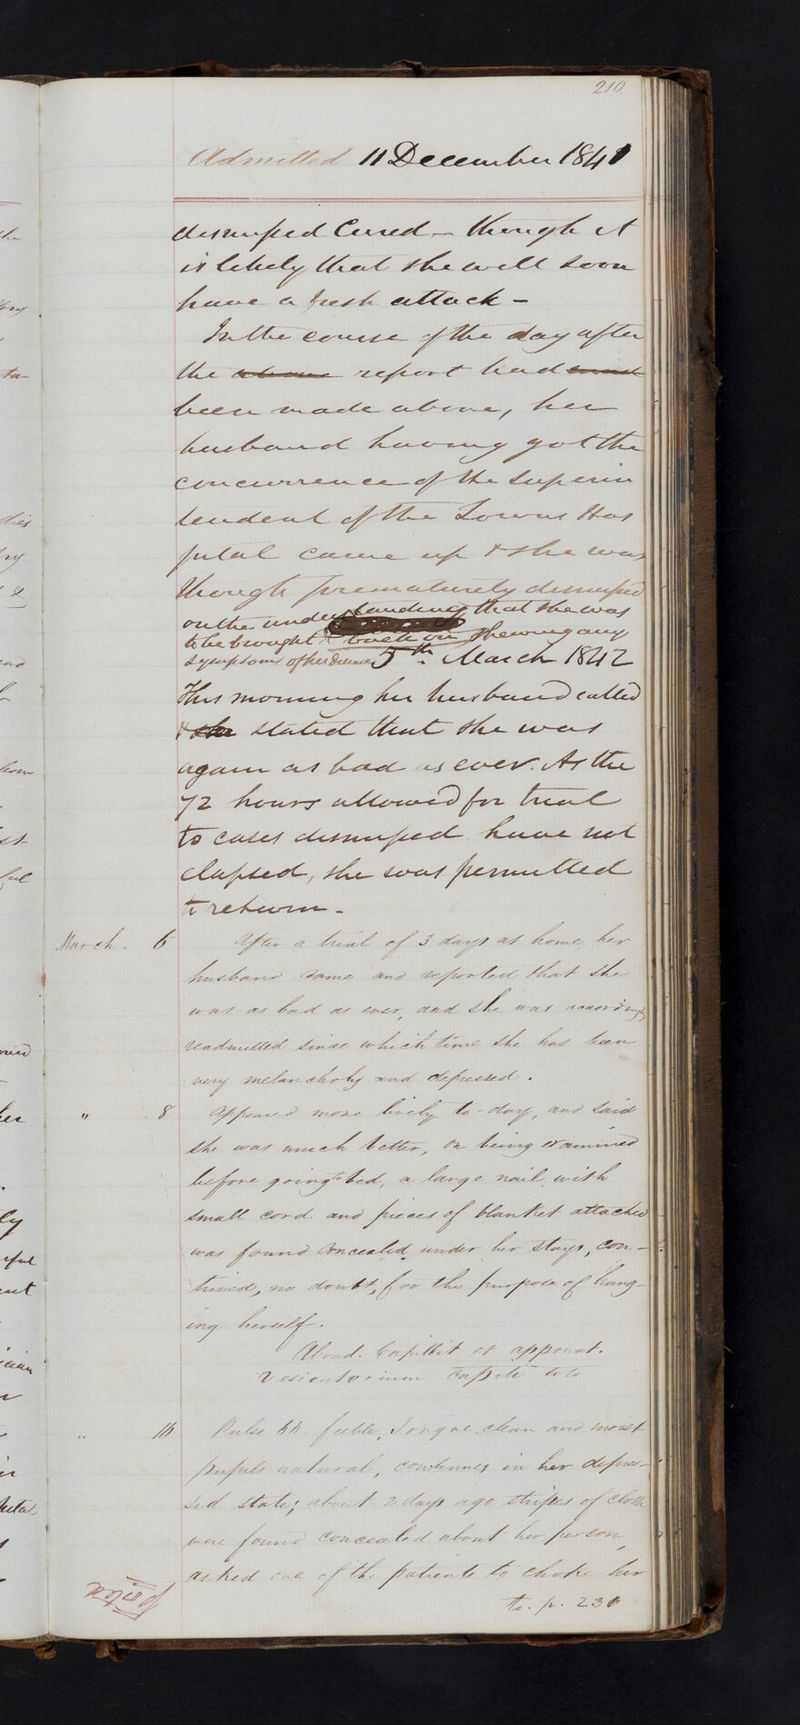 210
Admitted 11 December 1841
dismissed Cured - though it
is likely that she will soon
have a fresh attack -
In the course of the day after
the above report had
been made above, her
husband having got the
concurrence of the Superin
tendent of the Towns Hos
pital came up & she was
though prematurely dismissed
on the understanding that she was
to be brought back on shewing any
symptoms of her disease 5th. March 1842
This morning her husband called
& she stated that she was
again as bad as ever. As the
72 hours allowed for trial
to cases dismissed have not
elapsed, she was permitted
to return -
March. 6 After a trial of 3 days at home, her
husband came and reported that she
was as bad as ever, and she was accordingly
readmitted since which time she has been
very melancholy and depressed.
" 8 Appeared more lively to-day, and said
she was much better, on being examined
before going to bed, a large nail with
small cord and pieces of blanket attached
was found concealed under her stays, con-
trived, no doubt, for the purpose of hang-
ing herself.
Abrad. Capillit et apponat.
Vesicatorium capiti toto
" 16 Pulse feeble, Tongue clean and moist
pupils natural, continues in her depres-
sed state; about 2 days ago stripes of cloth
were found concealed about her person,
asked one of the patients to choke her
to. p. 231